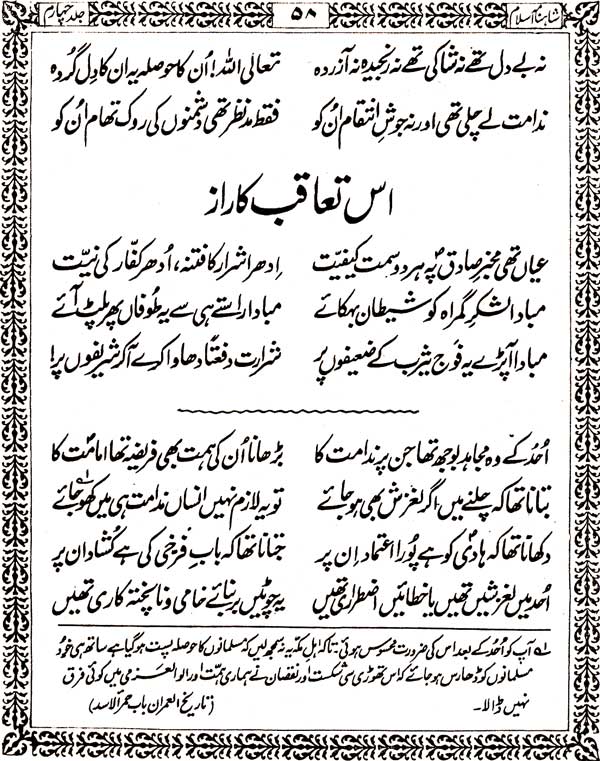 شاہنامہ اسلام ۵۸ جلد چہارم
نہ بے دل تھے نہ شاکی تھے نہ رنجیدہ نہ آزردہ تعالی اللہ! اُن کا حوصلہ یہ ان کا دل گردہ
ندامت لے چلی تھی اور نہ جوشِ انتقام اُن کو فقط مدنظر تھی دشمنوں کی روک تھام اُن کو
اس تعاقب کا راز
عیاں تھی مخبرِ صادقؐ پہ ہر دو سمت کیفیّت اِدھر اشرار کا فتنہ، اُدھر کفّار کی نیّت
مبادا لشکرِ گمراہ کو شیطان بہکائے مبادا راستے ہی سے یہ طُوفاں پھر پلٹ آئے
مبادا آ پڑے یہ فوج یثرب کے ضعیفوں پر شرارت دفعتًا دھاوا کرے آ کر شریفوں پر
اُحد کے وہ مجاہد بوجھ تھا جن پر ندامت کا بڑھانا اُن کی ہمت بھی فریضہ تھا امامت کا
بتانا تھا کہ چلنے میں اگر لغزش بھی ہو جائے تو یہ لازم نہیں انساں ندامت ہی میں کھو جائے ؎۱
دکھانا تھا کہ ہادیؐ کو ہے پُورا اعتماد اِن پر جتانا تھا کہ بابِ فرخی کی ہے کُشاد ان پر
اُحد میں لغزشیں تھیں یا خطائیں اضطراری تھیں یہ چوٹیں بر بنائے خامی و ناپختہ کاری تھیں
؎۱ آپ کو اُحد کے بعد اس کی ضرورت محسوس ہوئی۔ تاکہ اہل مکہ یہ نہ سمجھ لیں کہ مسلمانوں کا حوصلہ پست ہو گیا ہے ساتھ ہی خود
مسلمانوں کو ڈھارس ہو جائے کہ اس تھوڑی سی شکست اور نقصان نے ہماری ہمت اور اولوالعزمی میں کوئی فرق
نہیں ڈالا۔ (تاریخ العمران باب حمرالاسد)